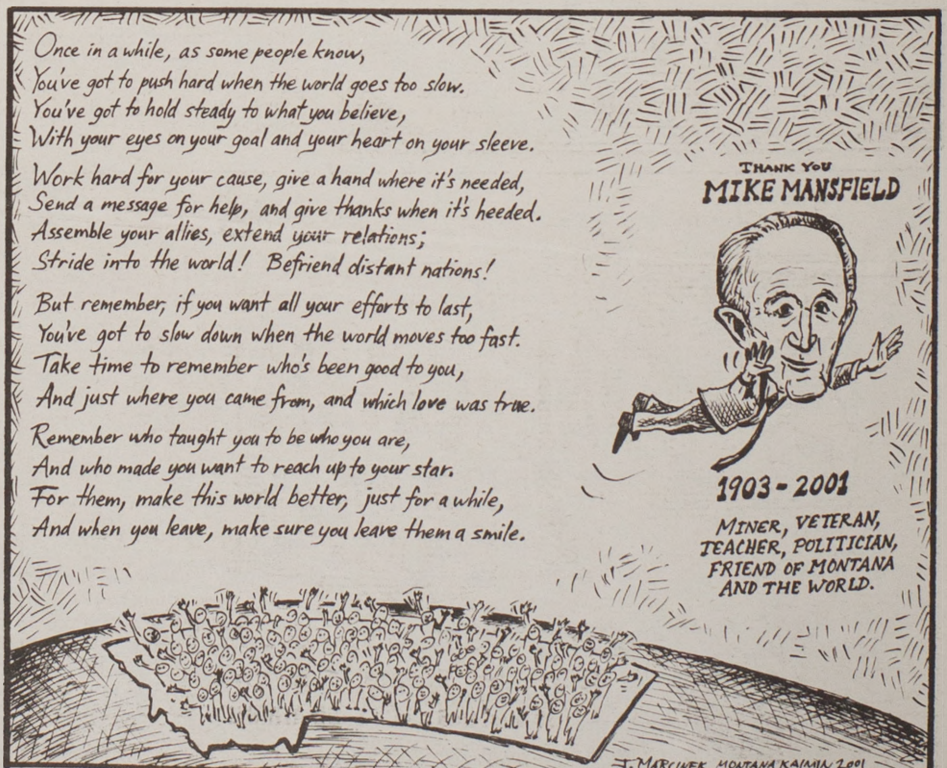 Once in a while, as some people know,
You've got to push hard when the world goes too slow.
You've got to hold steady to what you believe,
With your eyes on your goal and your heart on your sleeve.
Work hard for your cause, give a hand where it's needed,
Send a message for help, and give thanks when it's heeded.
Assemble your allies, extend your relations;
Stride into the world! Befriend distant nations!
But remember, if you want all your efforts to last,
You've got to slow down when the world moves too fast.
Take time to remember who's been good to you,
And just where you came from, and which love was true.
Remember who taught you to be who you are,
And who made you want to reach up to your star.
For them, make this world better, just for a while,
And when you leave, make sure you leave them a smile.
THANK YOU
MIKE MANSFIELD
1903-2001
MINER, VETERAN,
TEACHER, POLITICIAN,
FRIEND OF MONTANA
AND THE WORLD.
J. MARCINEK MONTANA KAIMIN 2001